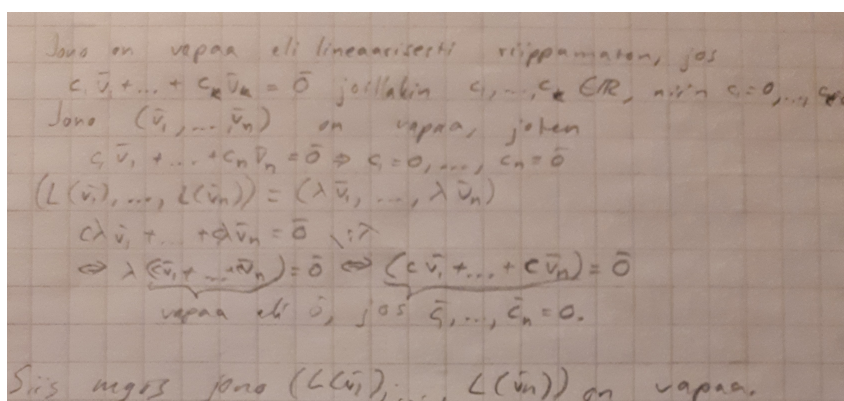 Jono on vapaa eli lineaarisesti riippumaton, jos
c₁v̄₁+...+ cₖv̄ₖ = 0̄ joillakin c₁,...,cₖ ∈ℝ, niin c₁=0,...,
Jono (v̄₁,...,v̄ₙ) on vapaa, joten
c₁v̄₁ +...+cₙv̄ₙ=0̄ ⇒ c₁=0,..., cₙ=0̄
(L(v̄₁),..., L(v̄ₙ)) = (λv̄₁,..., λv̄ₙ)
cλv̄₁ +...+cλv̄ₙ=0̄ \:λ
⇔ λ(cv̄₁+...+cv̄ₙ)=0̄ ⇔ (cv̄₁+...+cv̄ₙ)=0̄
vapaa eli 0̄, jos c̄₁,...,c̄ₙ=0.
Siis myös jono (L(v̄₁),..., L(v̄n)) on vapaa.